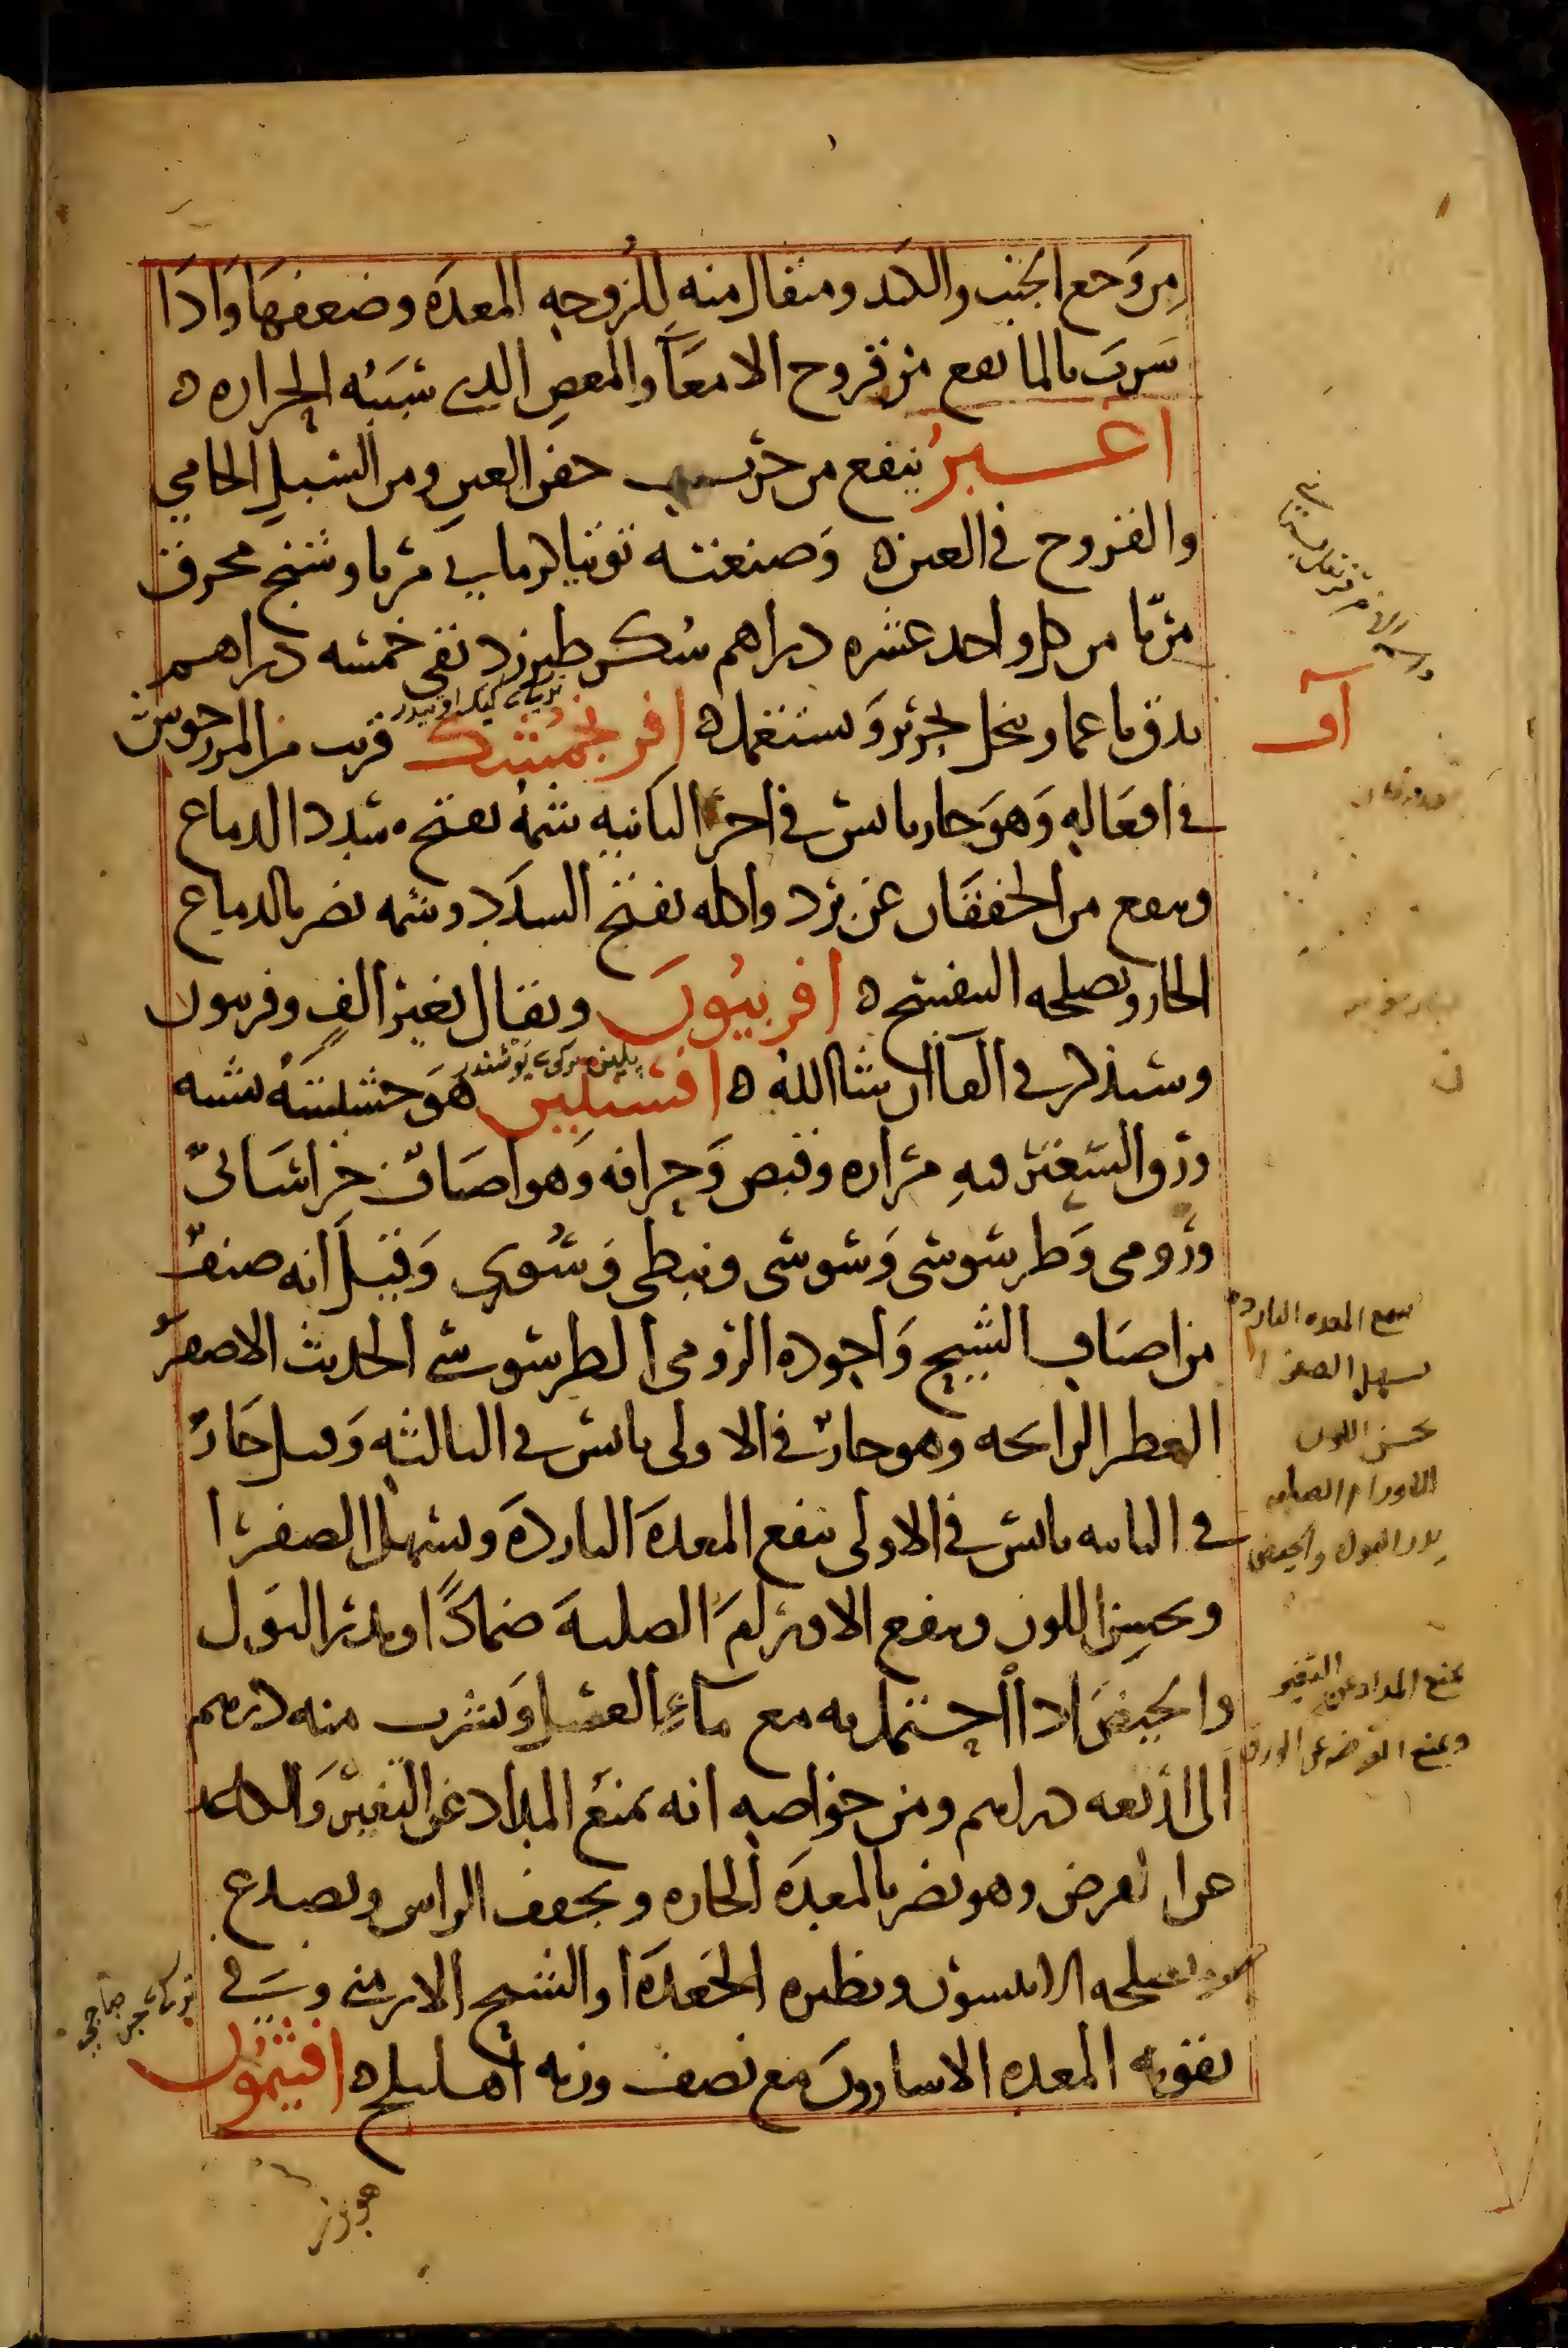 من وجع الجنب والكبد ومثقال منه للزوجه المعده وضعفها واذا
شرب بالما نفع من قروح الامعا والمغص الذي سببه الحراره ه
اغبر ينفع من جرب جفن العين ومن السبل الحامي
والقروح في العين ه وصنعته توتيا كرماني مربا وشنج محرق
مربا من كل واحد عشره دراهم سكر طبرزد نقي خمسه دراهم
يدق ناعما وينخل بحرير ويستعمل ه افرنجمشك قريب من المرزجوش
في افعاله وهو حار يابس في اخر الثانيه شمه يفتح سدد الدماغ
وينفع من الخفقان عن برد واكله يفتح السدد وشمه يضر بالدماغ
الحار ويصلحه البنفسج ه افربيون ويقال بغير الف وفربيون
وسنذكر في الفا ان شا الله ه افسنتين هو حشيشه يشبه
ورق السعتر فيه مراره وقبض وحرافه وهو اصناف خراساني
ورومي وطرسوسي وسوسي ونبطي وسوري وقيل انه صنف
من اصناف الشيح واجوده الرومي الطرسوسي الحديث الاصفر
العطر الرايحه وهو حار في الاولى يابس في الثالثه وقيل حار
في الثانيه يابس في الاولى ينفع المعده البارده ويسهل الصفرا
ويحسن اللون وينفع الاورام الصلبه ضمادا ويدر البول
والحيض اذا احتمل به مع ماء العسل ويشرب منه درهم
الى اربعه دراهم ومن خواصه انه يمنع المداد عن التغير والكاغد
عن ان يقرض وهو يضر بالمعده الحاره ويجفف الراس ويصدع
ويصلحه الانيسون ونظيره الجعده او الشيح الارمني وفي
تقويه المعده الاسارون مع نصف وزنه اهليلج ه افتيمون
ينفع المعده البارده
يسهل الصفرا
يحسن اللون
الاورام الصلبه
يدر البول والحيض
يمنع المداد عن التغير
ويمنع القرضه عن الورق